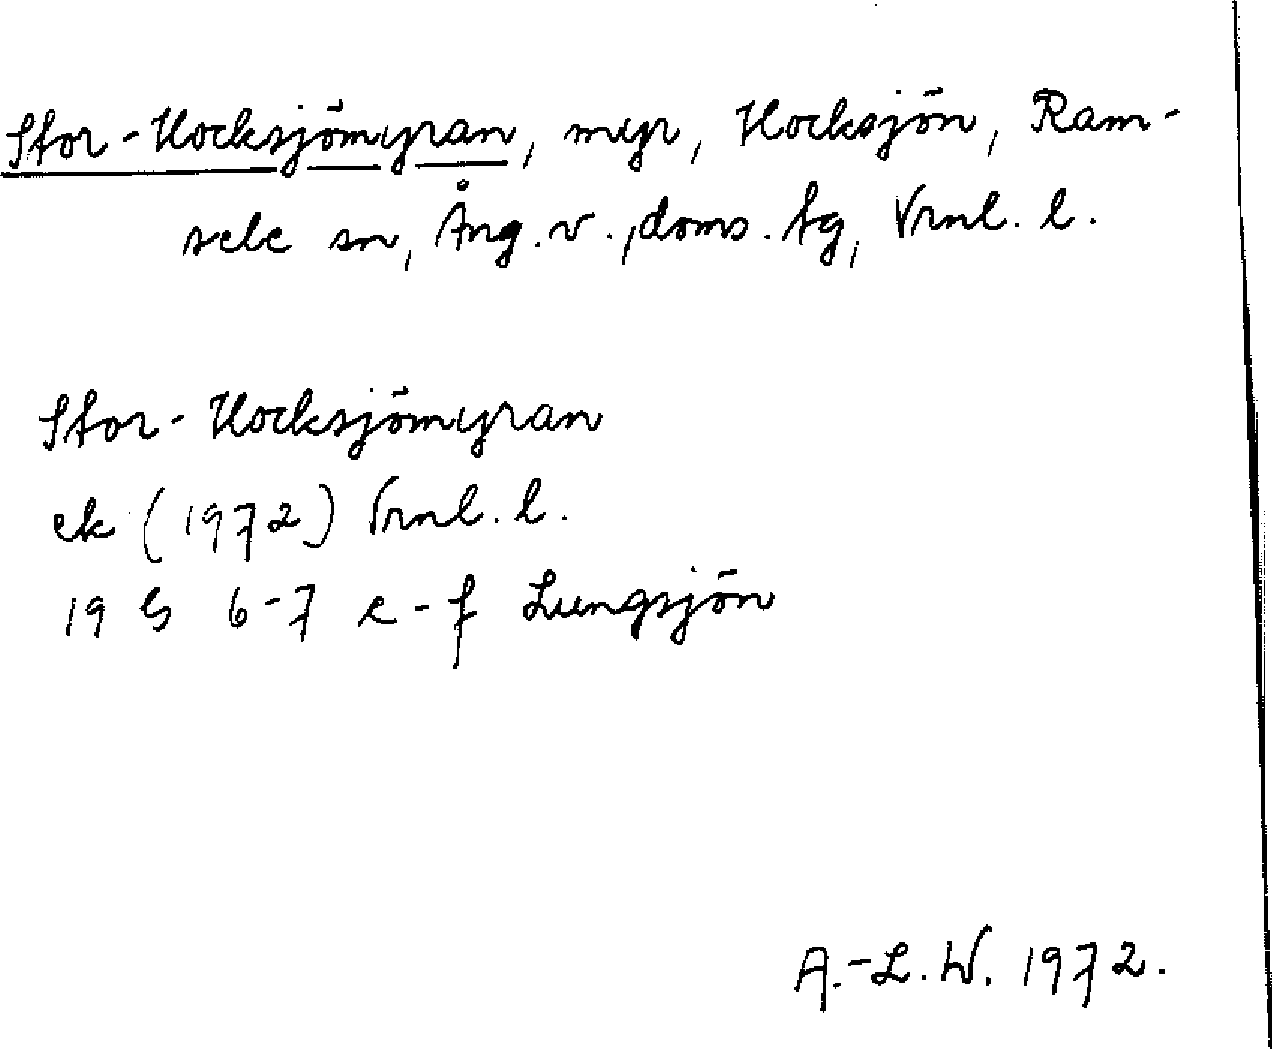 Stor-Hocksjömyran, myr, Hocksjön, Ram-
sele sn, Ång. v., doms. tg, Vrnl. l.
Stor-Hocksjömyran
ek (1972) Vrnl. l.
19 G 6-7 e-f Lungsjön
A.-L. W. 1972.